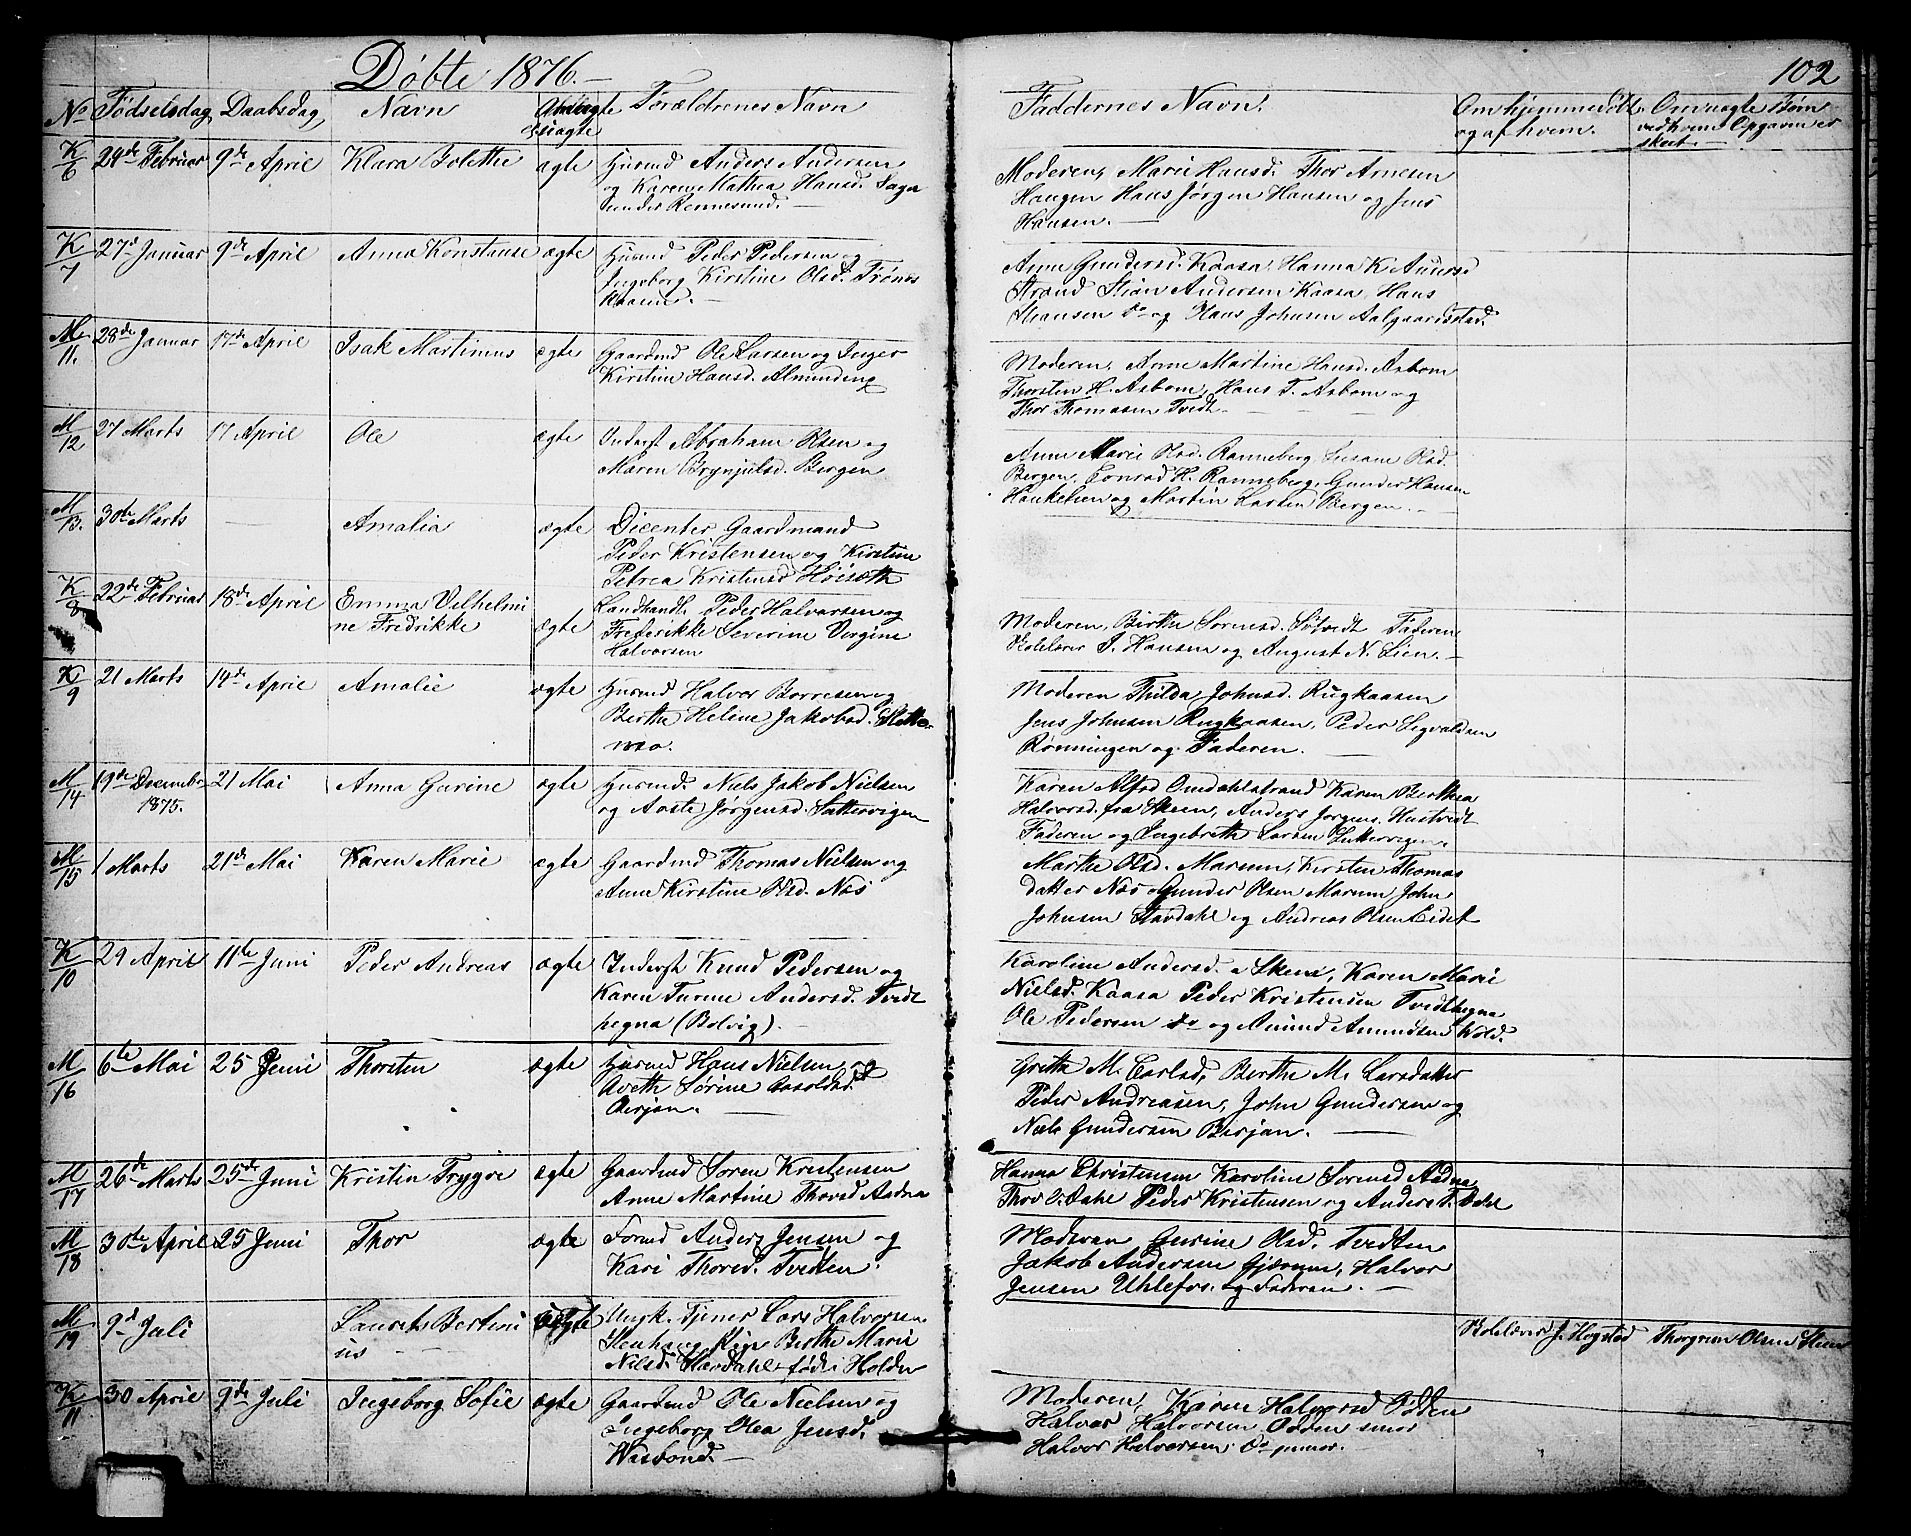 Døbte 1876.
102
No Fødselsdag Daabsdag Navn Ægte uægte Forældrenes Navn Faddernes Navn. Om hjemmedøbt og af hvem. Om uægte Børn ved hvem Opgaven er skeet.
K/6 24de Februar 9de April Klara Bolette ægte Husmd Anders Andersen
og Karen Mathea Hansd.
Moderen, Marie Hansd. Thor Arnesen
Haugen Hans Jørgen Hansen og Jens
Hansen.
K/7 27d Januar 9de April Anna Konstanse ægte Husmd Peder Pedersen og
Ingeborg Kirstine Olsd.
Anne Gundersd. Kaasa, Hanna K.
Strand Stian Andersen Kaasa, Hans
Hansen Do og Klaus Johnsen Aalgaardsstad.
M/11. 28de Januar 17de April Isak Martinus ægte Gaardmd Ole Larsen og Inger
Kirstine Hansd. Almundmyr
Moderen, Anne Martine Hansd. Asbom
Thorstin H. Asbom, Hans T. Asbom og
Thor Thomasen Tvedt.
M/12 27 Marts 17 April Ole ægte Inderst Abraham Olsen og
Maren Brynjulsd. Bergen
Anne Marie Olsd. Ranneberg, Susane Olsd.
Bergen, Conrad H. Ranneberg, Gunder Hansen
Haukelien og Martin Larsen Bergen.
M/13. 30te Marts Amalia ægte Dicenter Gaardmand
Peder Kristensen og Kirstine
Petrea Kristensd Höisæth
K/8 22de Februar 18de April Emma Vilhelmi
ne Fredrikke ægte Landhandl. Peder Halvorsen og
Frederikke Severine Vergine
Halvorsen
Moderen, Birthe Sorensd. Söfvedt Faderen
Skolelærer J. Hansen og August N. Lien.
K/9 21 Marts 14de April Amalie ægte Husmd Halvor Borresen og
Berthe Helene Jakobsd.
Moderen Thilda Johnsd. Rugkaasen
Jens Johnsen Rugkaasen, Peder Sigvaldsen
Rønningen og Faderen.
M/14 19de December 1875. 21 Mai Anna Gurine ægte Husmd. Niels Jakob Nielsen
og Aaste Jørgensd.
Karen Alfsd Omdahlstrand Karen Berthea
Halvorsd. fra Skien, Anders Jørgens. Hustvedt
Faderen og Ingebreth Larsen
M/15 1 Marts 21de Mai Karen Marie ægte Gaardmd Thomas Nielsen og
Anne Kirstine Olsd. Næs
Marthe Olsd. Marum, Kirsten Thomas
datter Næs Gunder Olsen Marum John
Johnsen Stavdahl og Andreas Olsen Eidet
K/10 29 April 11te Juni Peder Andreas ægte Inderst Knud Pedersen og
Karen Turine Andersd. Tvedt
hegna (Bolvig).
Karoline Andersd. Skien, Karen Marie
Nielsd. Kaasa Peder Kristensen Tvedthegna
Ole Pedersen do og Amund Amundsen Wold.
M/16 6te Mai 25 Juni Thorsten ægte Husmd Hans Nielsen og
Aveth Sørine
Berjan.
Grethe M. Carlsd, Berthe M. Larsdatter
Peder Andreasen, John Gundersen og
Niels Gundersen Berjan.
M/17 26de Marts 25de Juni Kristin Trygve ægte Gaardmd Soren Kristensen
Anne Martine Thorsd Aadna
Hanna Christensen Karoline Sorensd Aadna
Thor O. Dahl Peder Kristensen og Anders T. Dahl
M/18 30te April 25 Juni Thor ægte Formd Anders Jensen og
Kari Thorsd. Tvedten.
Moderen Gurine Olsd. Tvedten
Jakob Andersen Gjærum, Halvor
Jensen Uhlefos. og Faderen.
M/19 9d Juli Laurits Bertini
us uægte Ungk. Tjener Lars Halvorsen
Stenhaug Pige Berthe Marie
Nilsd. Stavdahl født i Holden
Skolelærer J. Hogstad Thorgrim Olsen
K/11. 30 April 9de Juli Ingeborg Sofie ægte Gaardmd Ole Nielsen og
Ingeborg Olea Jensd.
Wasbond.
Moderen, Karen Halvorsd Odden
Halvor Halvorsen Odden senior
Halvor Halvorsen Do junior.